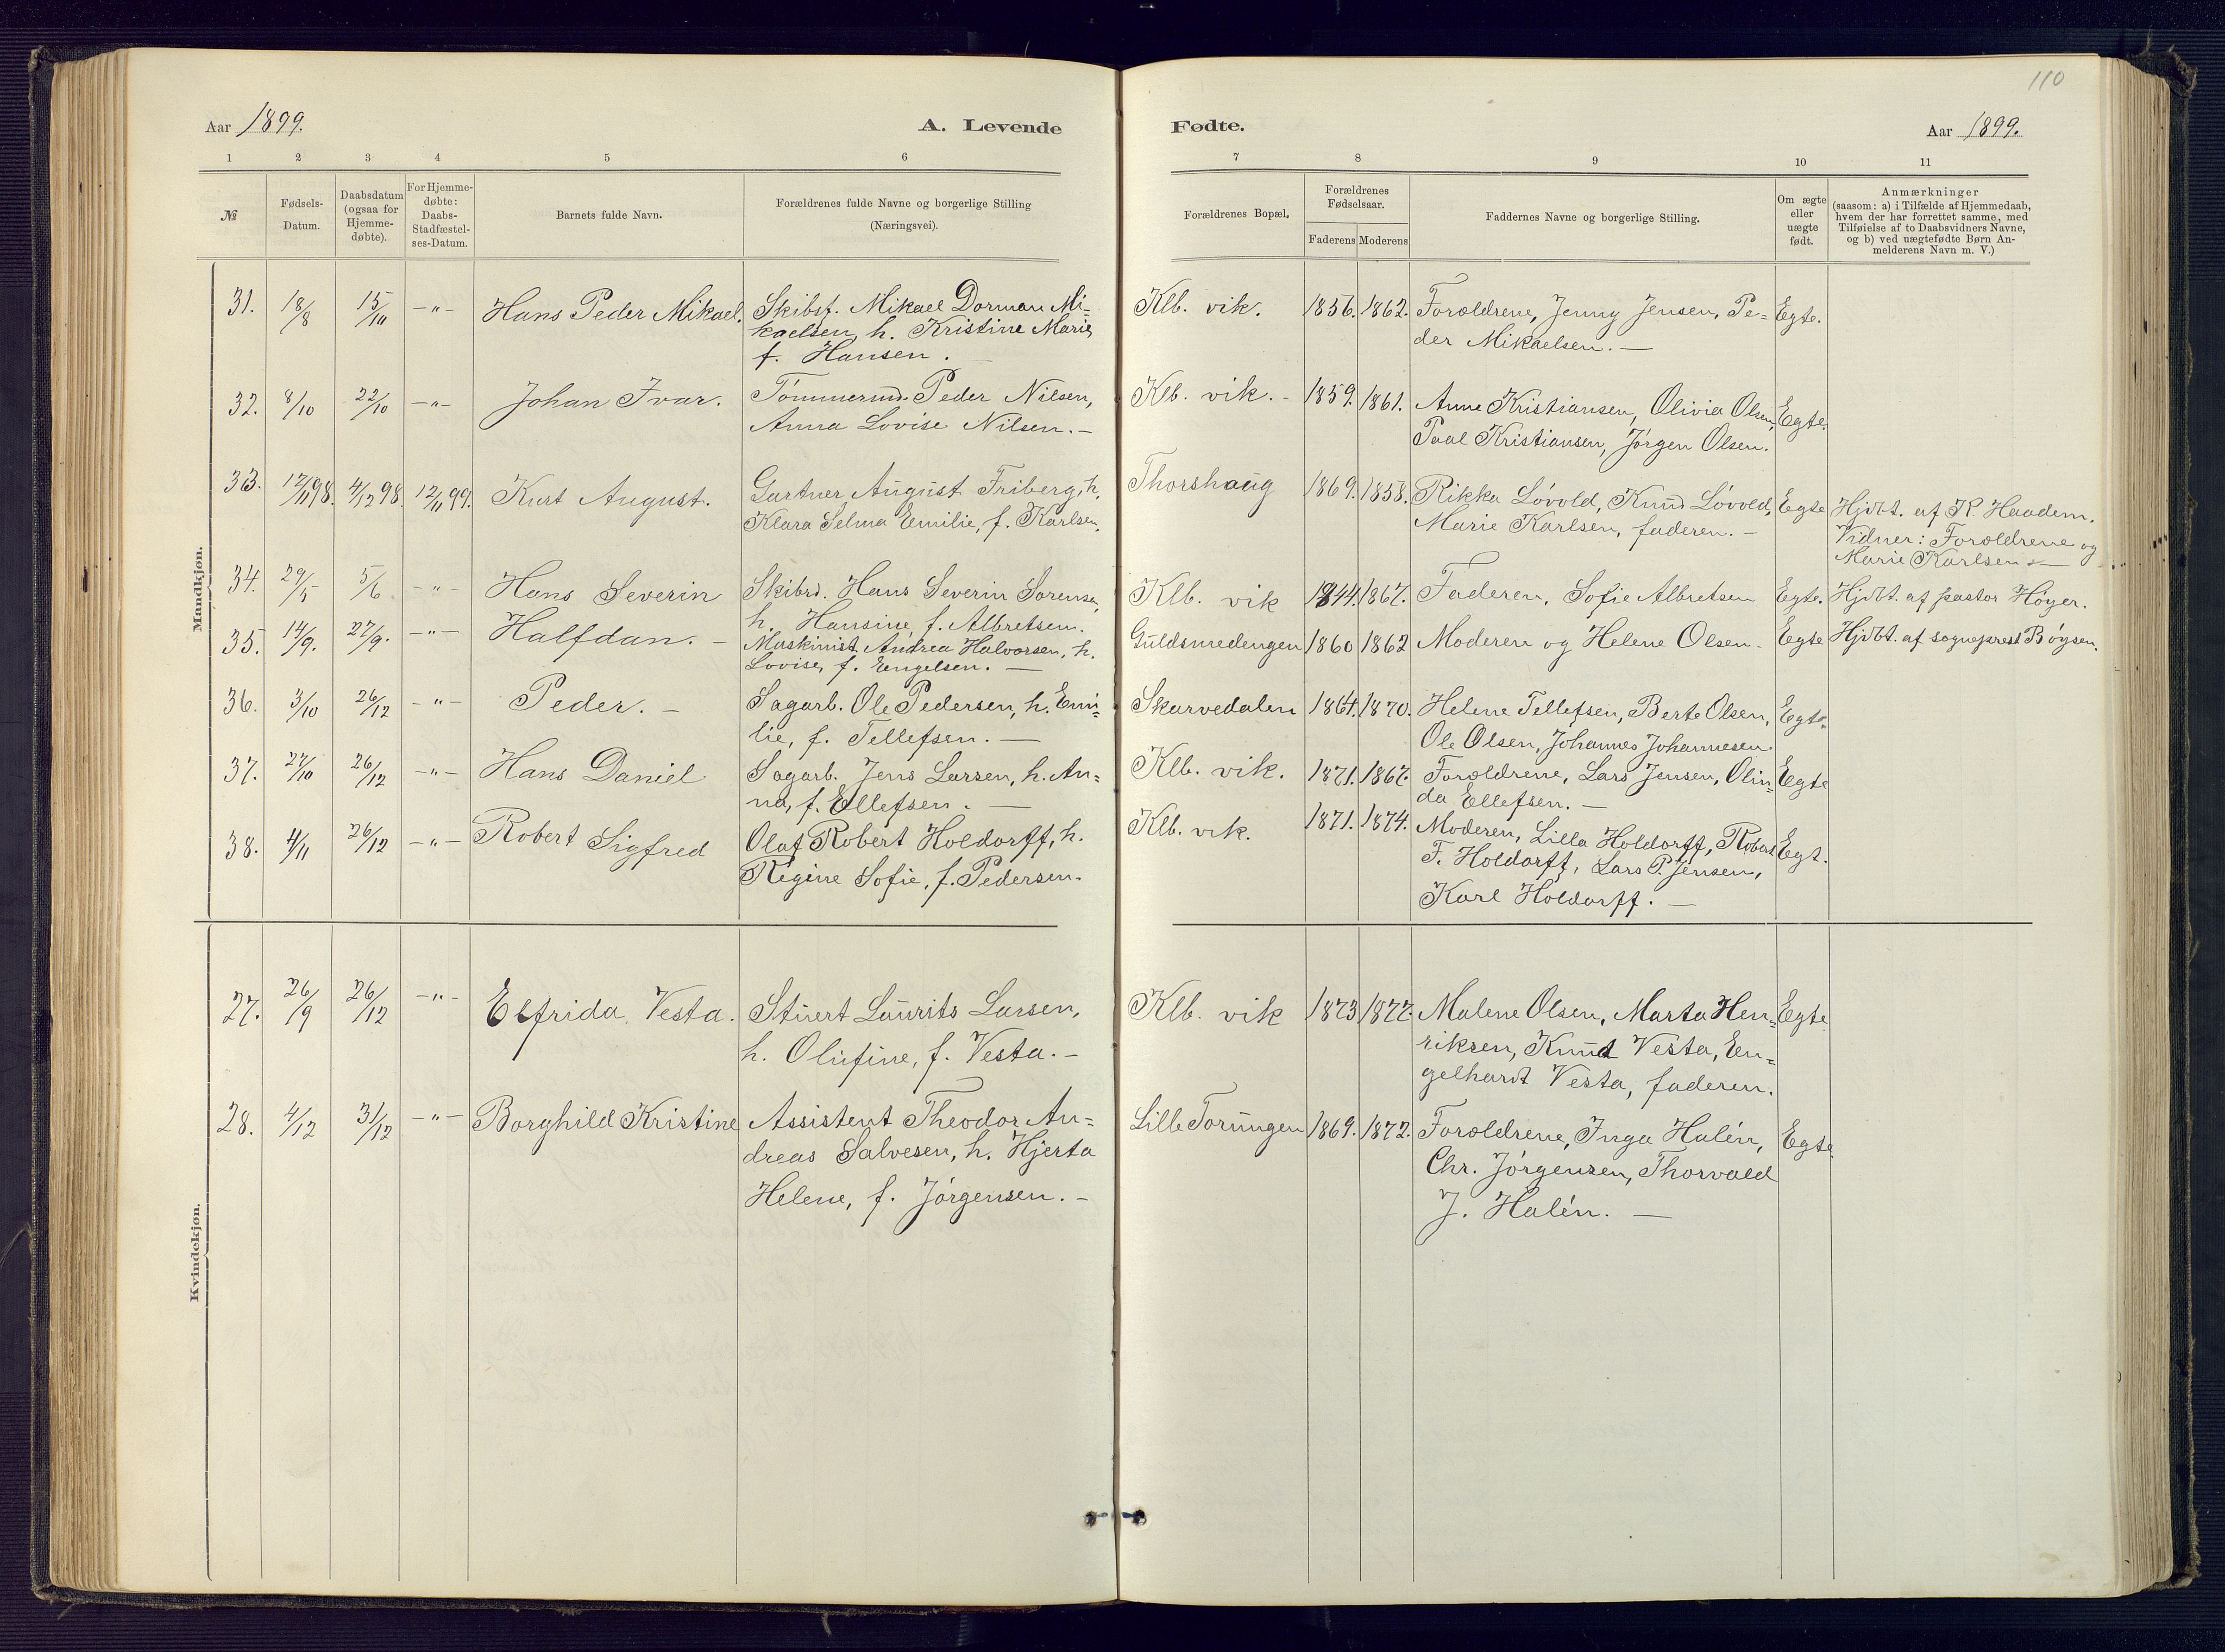 110
Aar 1899. A. Levende Fødte. Aar 1899.
1 2 3 4 5 6 7 8 9 10 11
№
Fødsels-
Datum.
Daabsdatum
(ogsaa for
Hjemme-
døbte).
For Hjemme-
døbte:
Daabs-
Stadfæstel-
ses-Datum.
Barnets fulde Navn.
Forældrenes fulde Navne og borgerlige Stilling
(Næringsvei).
Forældrenes Bopæl.
Forældrenes
Fødselsaar.
Faderens Moderens
Faddernes Navne og borgerlige Stilling.
Om ægte
eller
uægte
født.
Anmærkninger
(saasom: a) i Tilfælde af Hjemmedaab,
hvem der har forrettet samme, med
Tilføielse af to Daabsvidners Navne,
og b) ved uægtefødte Børn An-
melderens Navn m. V.)
Mandkjøn.
31. 18/8 15/10 -"- Hans Peder Mikael. Skibsf. Mikael Dorman Mi- Klb. vik. 1856. 1862. Foroldrene, Jenny Jensen, Pe= Egte.
kaelsen, h. Kristine Marie, der Mikaelsen. —
f. Hansen. —
32. 8/10 22/10 -"- Johan Ivar. Tømmermd. Peder Nilsen, Klb. vik. - 1859. 1861. Anne Kristiansen, Olivia Olsen, Egte.
Anna Lovise Nilsen. - Paal Kristiansen, Jørgen Olsen.
33. 12/11 98. 4/12 98. 12/11 99. Kurt August. Gartner August Friberg, h. Thorshaug 1869. 1858. Rikka Løvold, Knud Løvold, Egte Hjdbt. af K. Haadem.
Klara Selma Emilie, f. Karlsen. Marie Karlsen, faderen. - Vidner: Foroldrene og
Marie Karlsen —
34. 29/5 5/6 -"- Hans Severin Skibsd. Hans Severin Sørensen, Klb. vik 1844. 1867. Faderen, Sofie Albretsen Egte. Hjdbt. af pastor Høyer.
h. Hansine f. Albretsen.
35. 14/9. 27/9. -"- Halfdan. - Maskinist Andrea Halvorsen, h. Guldsmedengen 1860 1862 Moderen og Helene Olsen - Egte Hjdbt. af sogneprest Bøysen.
Lovise, f. Engelsen. —
36. 3/10 26/12 -"- Peder. - Sagarb. Ole Pedersen, h. Emi= Skarvedalen 1864. 1870. Helene Tellefsen, Berte Olsen, Egte.
lie, f. Tellefsen. — Ole Olsen, Johannes Johannesen.
37. 27/10 26/12 -"- Hans Daniel Sagarb. Jens Larsen, h. An= Klb. vik. 1871. 1867. Foroldrene, Lars Jensen, Olin= Egte
na, f. Ellefsen. — da Ellefsen. —
38. 4/11 26/12 -"- Robert Sigfred Olaf Robert Holdorff, h. Klb. vik. 1871. 1874. Moderen, Lilla Holdorff, Robert Egt.
Regine Sofie, f. Pedersen. F. Holdorff, Lars P. Jensen,
Karl Holdorff. —
Kvindekjøn.
27. 26/9 26/12 -"- Elfrida Vesta. Stuert Laurits Larsen, Klb. vik 1873 1877. Malene Olsen, Marta Hen= Egte.
h. Olufine, f. Vesta. - riksen, Knud Vesta, En=
gelhardt Vesta, faderen.
28. 4/12 31/12 -"- Borghild Kristine Assistent Theodor An= Lille Torungen 1869. 1872. Foroldrene, Inga Halén, Egte.
dreas Salvesen, h. Hjerta Chr. Jørgensen, Thorvald
Helene, f. Jørgensen. - J. Halén. —